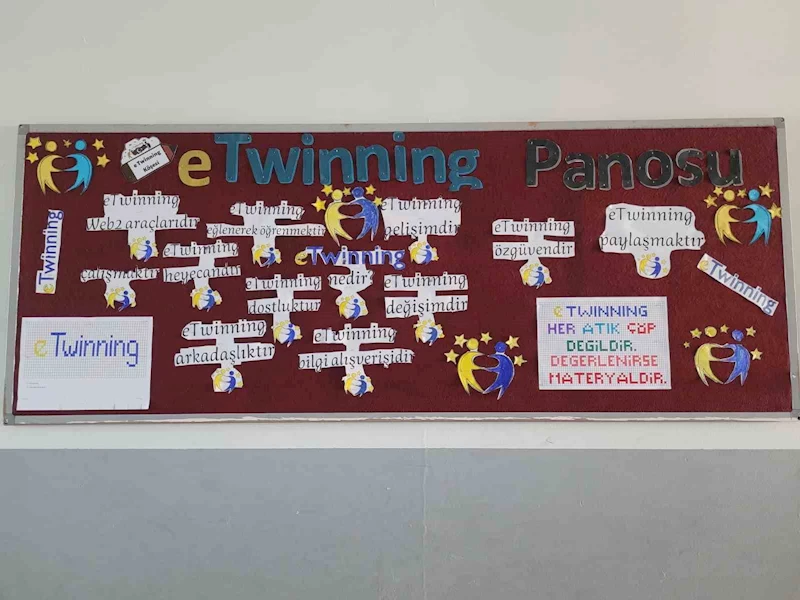 eTwinning Panosu
eTwinning
Köşesi
eTwinning
eTwinning
Web2 araçlarıdır
eTwinning
eğlenerek öğrenmektir
eTwinning
gelişimdir
eTwinning
özgüvendir
eTwinning
paylaşmaktır
eTwinning
çalışmaktır
eTwinning
heyecandır
eTwinning
nedir?
eTwinning
eTwinning
dostluktur
eTwinning
değişimdir
eTwinning
arkadaşlıktır
eTwinning
bilgi alışverişidir
eTwinning
eTWINNING
HER ATIK ÇÖP
DEĞİLDİR.
DEĞERLENİRSE
MATERYALDİR.